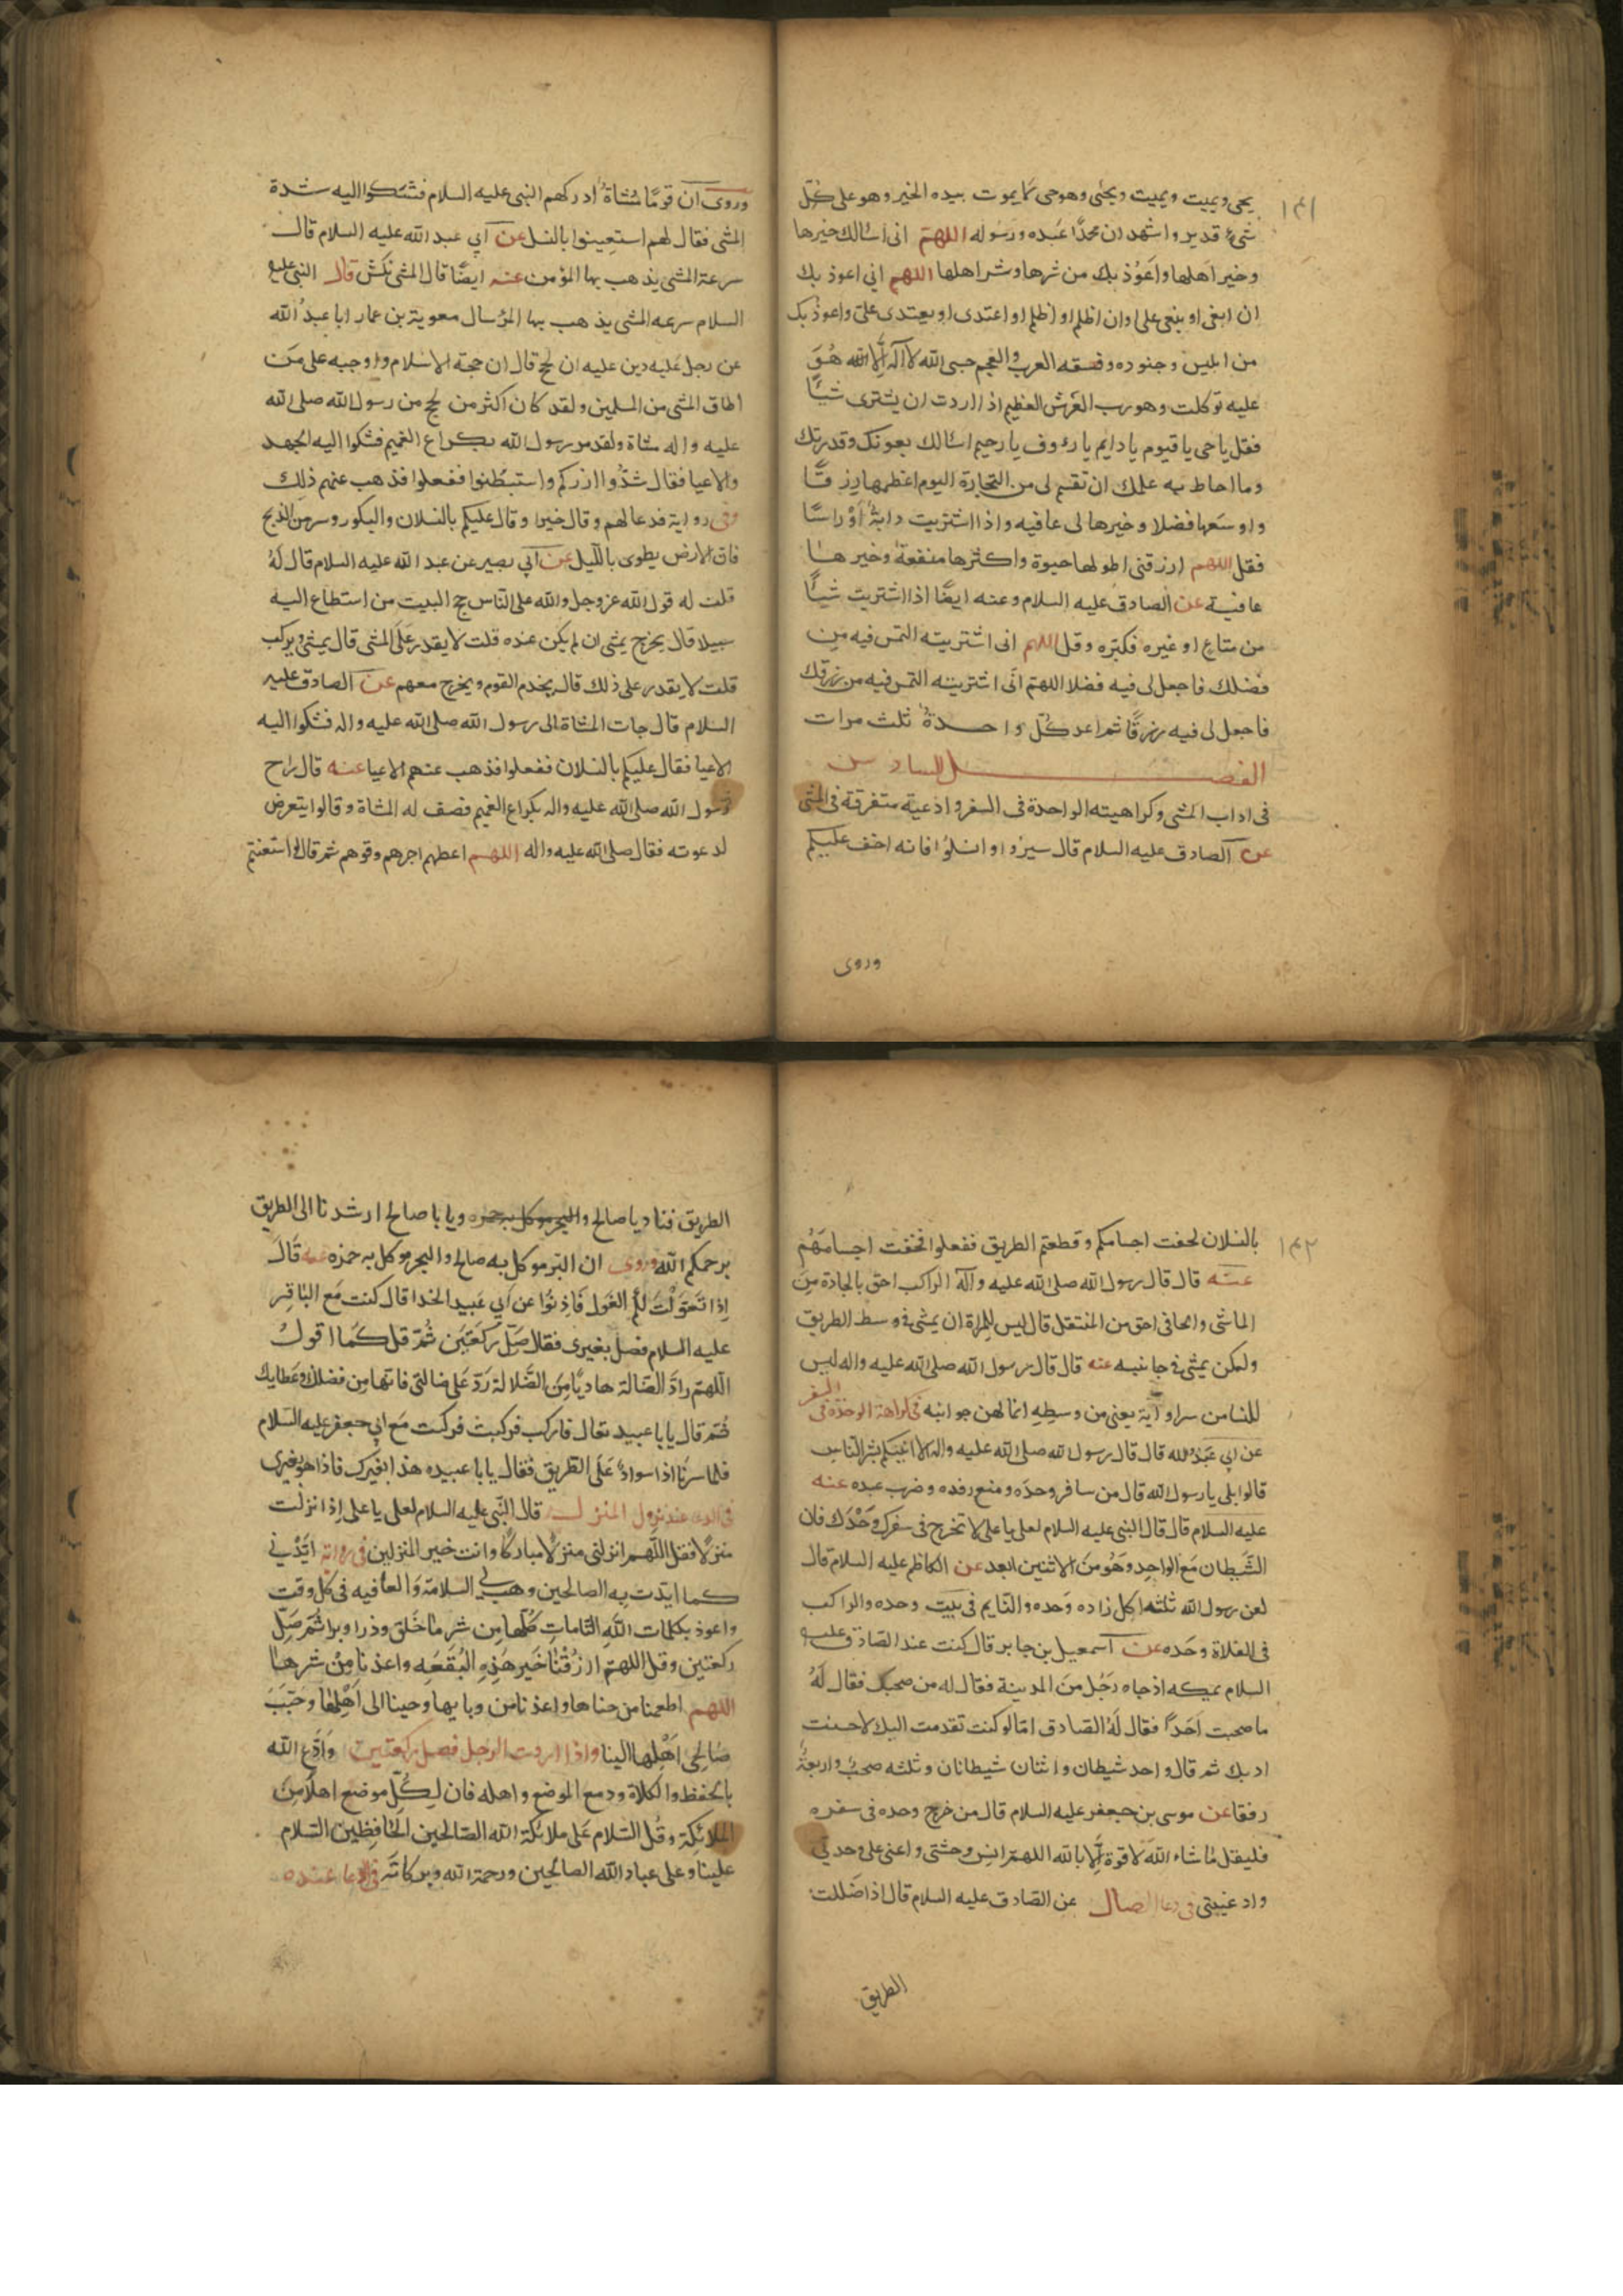 ١٤١
يحيى ويميت ويميت ويحيى وهو حى لا يموت بيده الخير وهو على كلّ
شىء قدير واشهد ان محمّدًا عبده ورسوله اللهمّ انى اسالك خيرها
وخير اهلها واعوُذ بك من شرها وشر اهلها اللهم اني اعوذ بك
ان ابغى او يبغى على او ان اظلم او اظلم او اعتدى او يعتدى علىّ واعوذ بك
من ابليس وجنوده وفسقه العرب والعجم حسبى الله لا اله الّا الله هُوَ
عليه توكلت وهو رب العَرش العظيم اذا اردت ان يشترى شيئًا
فقل يا حى يا قيوم يا دايم يا رؤوف يا رحيم اسالك بعونك وقدرتك
وما احاط به علمك ان تقسم لى من التجارة اليوم اعظمها رزقًا
واوسَعها فضلا وخيرها لى عافيه واذا اشتريت دابةً اوْ راسًا
فقل اللهم ارزقنى اطولها حيوة واكثرها منفعةً وخيرها
عافية عن الصادق عليه السلام وعنه ايضًا اذا اشتريت شيئًا
من متاع او غيره فكبّره وقل اللهم انى اشتريته التمس فيه مِن
فضلك فاجعل لى فيه فضلا اللهمّ انّى اشتريته التمس فيه من رزقك
فاجعل لى فيه رزقًا ثم اعد كلّ واحدةً ثلث مرات
الفصل السادس
فى اداب المشى وكراهيته الواحدة فى السفر وادعية متفرقة فى المشى
عن الصادق عليه السلام قال سيرُوا وانسلُوا فانه اخف عليكم
وروى
وروى ان قومًا مشاةً ادركهم النبى عليه السلام فشكوا اليه شدة
المشى فقال لهم استعينوا بالنسل عن ابي عبد الله عليه السلام قال
سرعة المشى يذهب بهاء المؤمن عنه ايضًا قال المشى نكش قال النبى عليه
السلام سرعه المشى يذهب بها المؤ سال معوية بن عمار ابا عبدُ الله
عن رجل عليه دين عليه ان يحج قال ان حجة الاسلام واوجبه على مَن
اطاق المشى من المسلمين ولقد كان اكثر من يحج من رسول الله صلى الله
عليه واله مشاة ولقد مر رسول الله بكراع الغميم فشكوا اليه الجهد
والاعيا فقال شدُّوا ازركم واستبطنوا ففعلوا فذهب عنهم ذلك
وفى رواية فدعا لهم وقال خيرا وقال عليكم بالنسلان والبكور وسر من الذبح
فان الارض يطوى بالليل عن ابي بصير عن عبد الله عليه السلام قال لهُ
قلت له قول الله عز وجل ولله على النّاس حج البيت من استطاع اليه
سبيلا قال يخرج يمشى ان لم يكن عنده قلت لا يقدر عَلَى المشى قال يمشى ويركب
قلت لا يقدر على ذلك قال يخدم القوم ويخرج معهم عن الصادق عليه
السلام قال جات المشاة الى رسول الله صلى الله عليه واله فشكوا اليه
الاعيا فقال عليكم بالنسلان ففعلوا فذهب عنهم الاعيا عنه قال راح
رسول الله صلى الله عليه واله بكراع الغميم فصف له المشاة وقالوا يتعرض
لدعوته فقال صلى الله عليه واله اللهم اعطهم اجرهم وقوهم ثم قال لو استعنتم
١٤٢
بالنسلان لخفت اجسامكم وقطعتم الطريق ففعلوا فخفت اجسامهُم
عنه قال قال رسول الله صلى الله عليه وآله الراكب احق بالجادة مِنَ
الماشى والحافى احق من المنتعل قال ليس للمراة ان يمشى فى وسط الطريق
ولكن يمشى فى جانبيه عنه قال قال رسول الله صلى الله عليه واله ليس
للنسا من سراوآية يعنى من وسطِهِ انما لهن جوانبه فى كراهة الوحدة فى السفر
عن ابي عَبدُ الله قال قال رسول الله صلى الله عليه واله الا انبيكم بشر النّاس
قالوا بلى يا رسول الله قال من سافر وحدَه ومنع رفده وضرب عبده عنه
عليه السلام قال قال النبى عليه السلام لعلى يا على لا تخرج فى سفرك وَحْدَك فان
الشّيطان مَع الواحِدِ وَهُو مِنَ الاثنين ابعد عن الكاظم عليه السلام قال
لعن رسول الله ثلثه اكل زاده وَحده والنّايم فى بيَت وحده والراكب
فى الفلاة وحَده عن اسمعيل بن جابر قال كنت عند الصّادق عليه
السلام بمكه اذ جاه رَجُل مِنَ المدينة فقال له من صحبك فقال لهُ
ما صحبت اَحَدًا فقال لَهُ الصّادق امّا لو كنت تقدمت اليك لاحسنت
ادبك ثم قال واحد شيطان واثنان شيطانان وثلثه صحبٌ واربعةٌ
رفقا عن موسى بن جعفر عليه السلام قال من خرج وحده فى سفره
فليقل ما شاء الله لا قوة الّا بالله اللهمّ انِس وحشتى واعنى على وحدتي
واد غيبتى فى دعا الضال عن الصّادق عليه السلام قال اذا ضَللت
الطريق
الطريق فناد يا صالح ويا با صالح ارشدنا الى الطريق
يرحمكم الله وروى ان البّر موكل به صالح والبحر موكل به حمزه عنه قال
اِذا تَغَوّلَتْ لكم الغول فَاذِنوُا عن اَبي عَبيد الحذا قال كنت مَع البٰاقِر
عليه السلام فضلّ بعيرى فقال صَلّ ركعَتَين ثُمّ قل كَمَا اقول
اللّهمّ رادّ الضّالة هاديًا مِنَ الضّلالة رَدّ عَلى ضالتى فانّها مِن فضلك وعَطايك
ثمّ قال يا با عبيد تعال فاركب فركبت فركبت مَع ابي جعفر عليه السَلام
فلما سرنا اذا سوادٌ عَلَى الطريق فقال يا با عبيده هذا بعيرك فاذا هو بعيرى
عند نزول المنزل قال النّبى عليه السلام لعلى يا على اِذا نزلت
منزلًا فقل اللّهم انزلنى منزلًا مباركًا وانت خير المنزلين فى رواية ايّدْني
كما ايّدت بِه الصالحين وهب لى السلامَة وَالعافيه فى كل وقت
واعوذ بكلمات الله التّاماتِ كُلّها مِن شر ما خَلق وذرا وبرا ثُمّ صَلّ
ركعتين وقل اللهمّ ارزقْنا خَير هَذِهِ البُقعَه واعذنا مِنْ شرها
اللهم اطعمنا من جناها واعذنا من وبايها وحببنا الى اَهْلِهَا وحَبّبَ
صَالحي اَهْلِها الينا واذا اردت الرحيل فصل ركعتين وَادْع الله
بالحفظ والكلاة ودع الموضع واهله فان لكلّ موضع اهلًا مِنَ
الملائكة وقُل السّلام عَلى ملائكة الله الصّالحين الحَافِظين السّلام
علينا وعلى عباد الله الصالحين ورحمة الله وبركاتهُ فى الدعا عنده